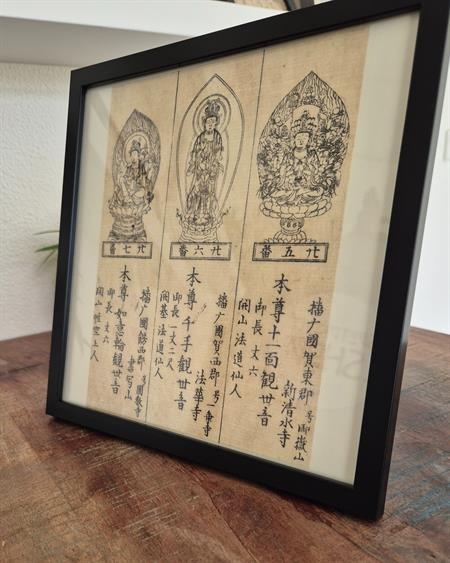 廿五番
播广國賀東郡 号御嶽山
新清水寺
本尊十一面觀世音
御長 丈六
開山 法道仙人
廿六番
播广國賀西郡 号
法華寺
本尊 千手觀世音
御長 一丈二尺
開基 法道仙人
廿七番
播广國餝西郡 号圓教寺
書写山
本尊 如意輪觀世音
御長 丈六
開山 性空上人